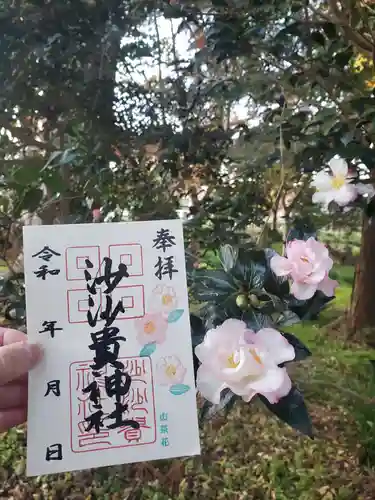 奉拝
沙沙貴神社
令和
年
月
日
山茶花